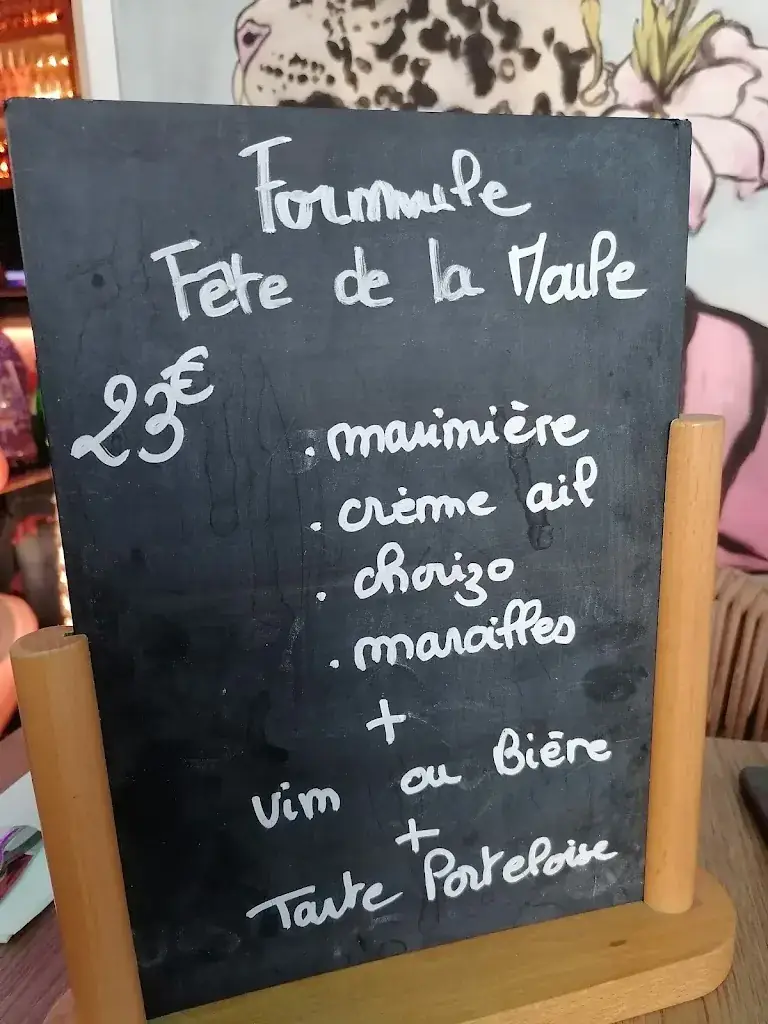 Formule
Fête de la Moule
23€
. marinière
. crème ail
. chorizo
. maroilles
+
Vin ou Bière
+
Tarte Porteloise